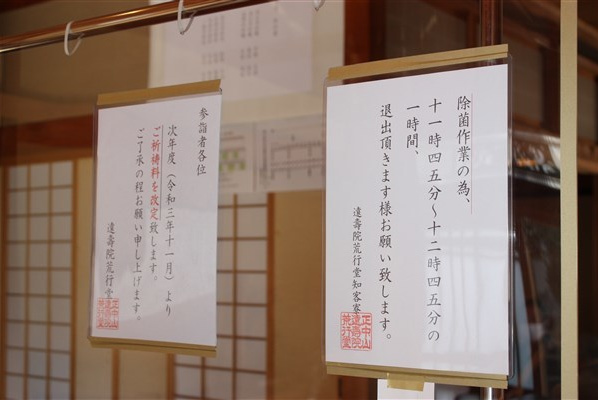 除菌作業の為、
十一時四五分～十二時四五分の
一時間、
退出頂きます様お願い致します。
遠壽院荒行堂知客寮
正中山
遠壽院
荒行堂
参詣者各位
次年度（令和三年十一月）より
ご祈祷料を改定致します。
ご了承の程お願い申し上げます。
遠壽院荒行堂
正中山
遠壽院
荒行堂